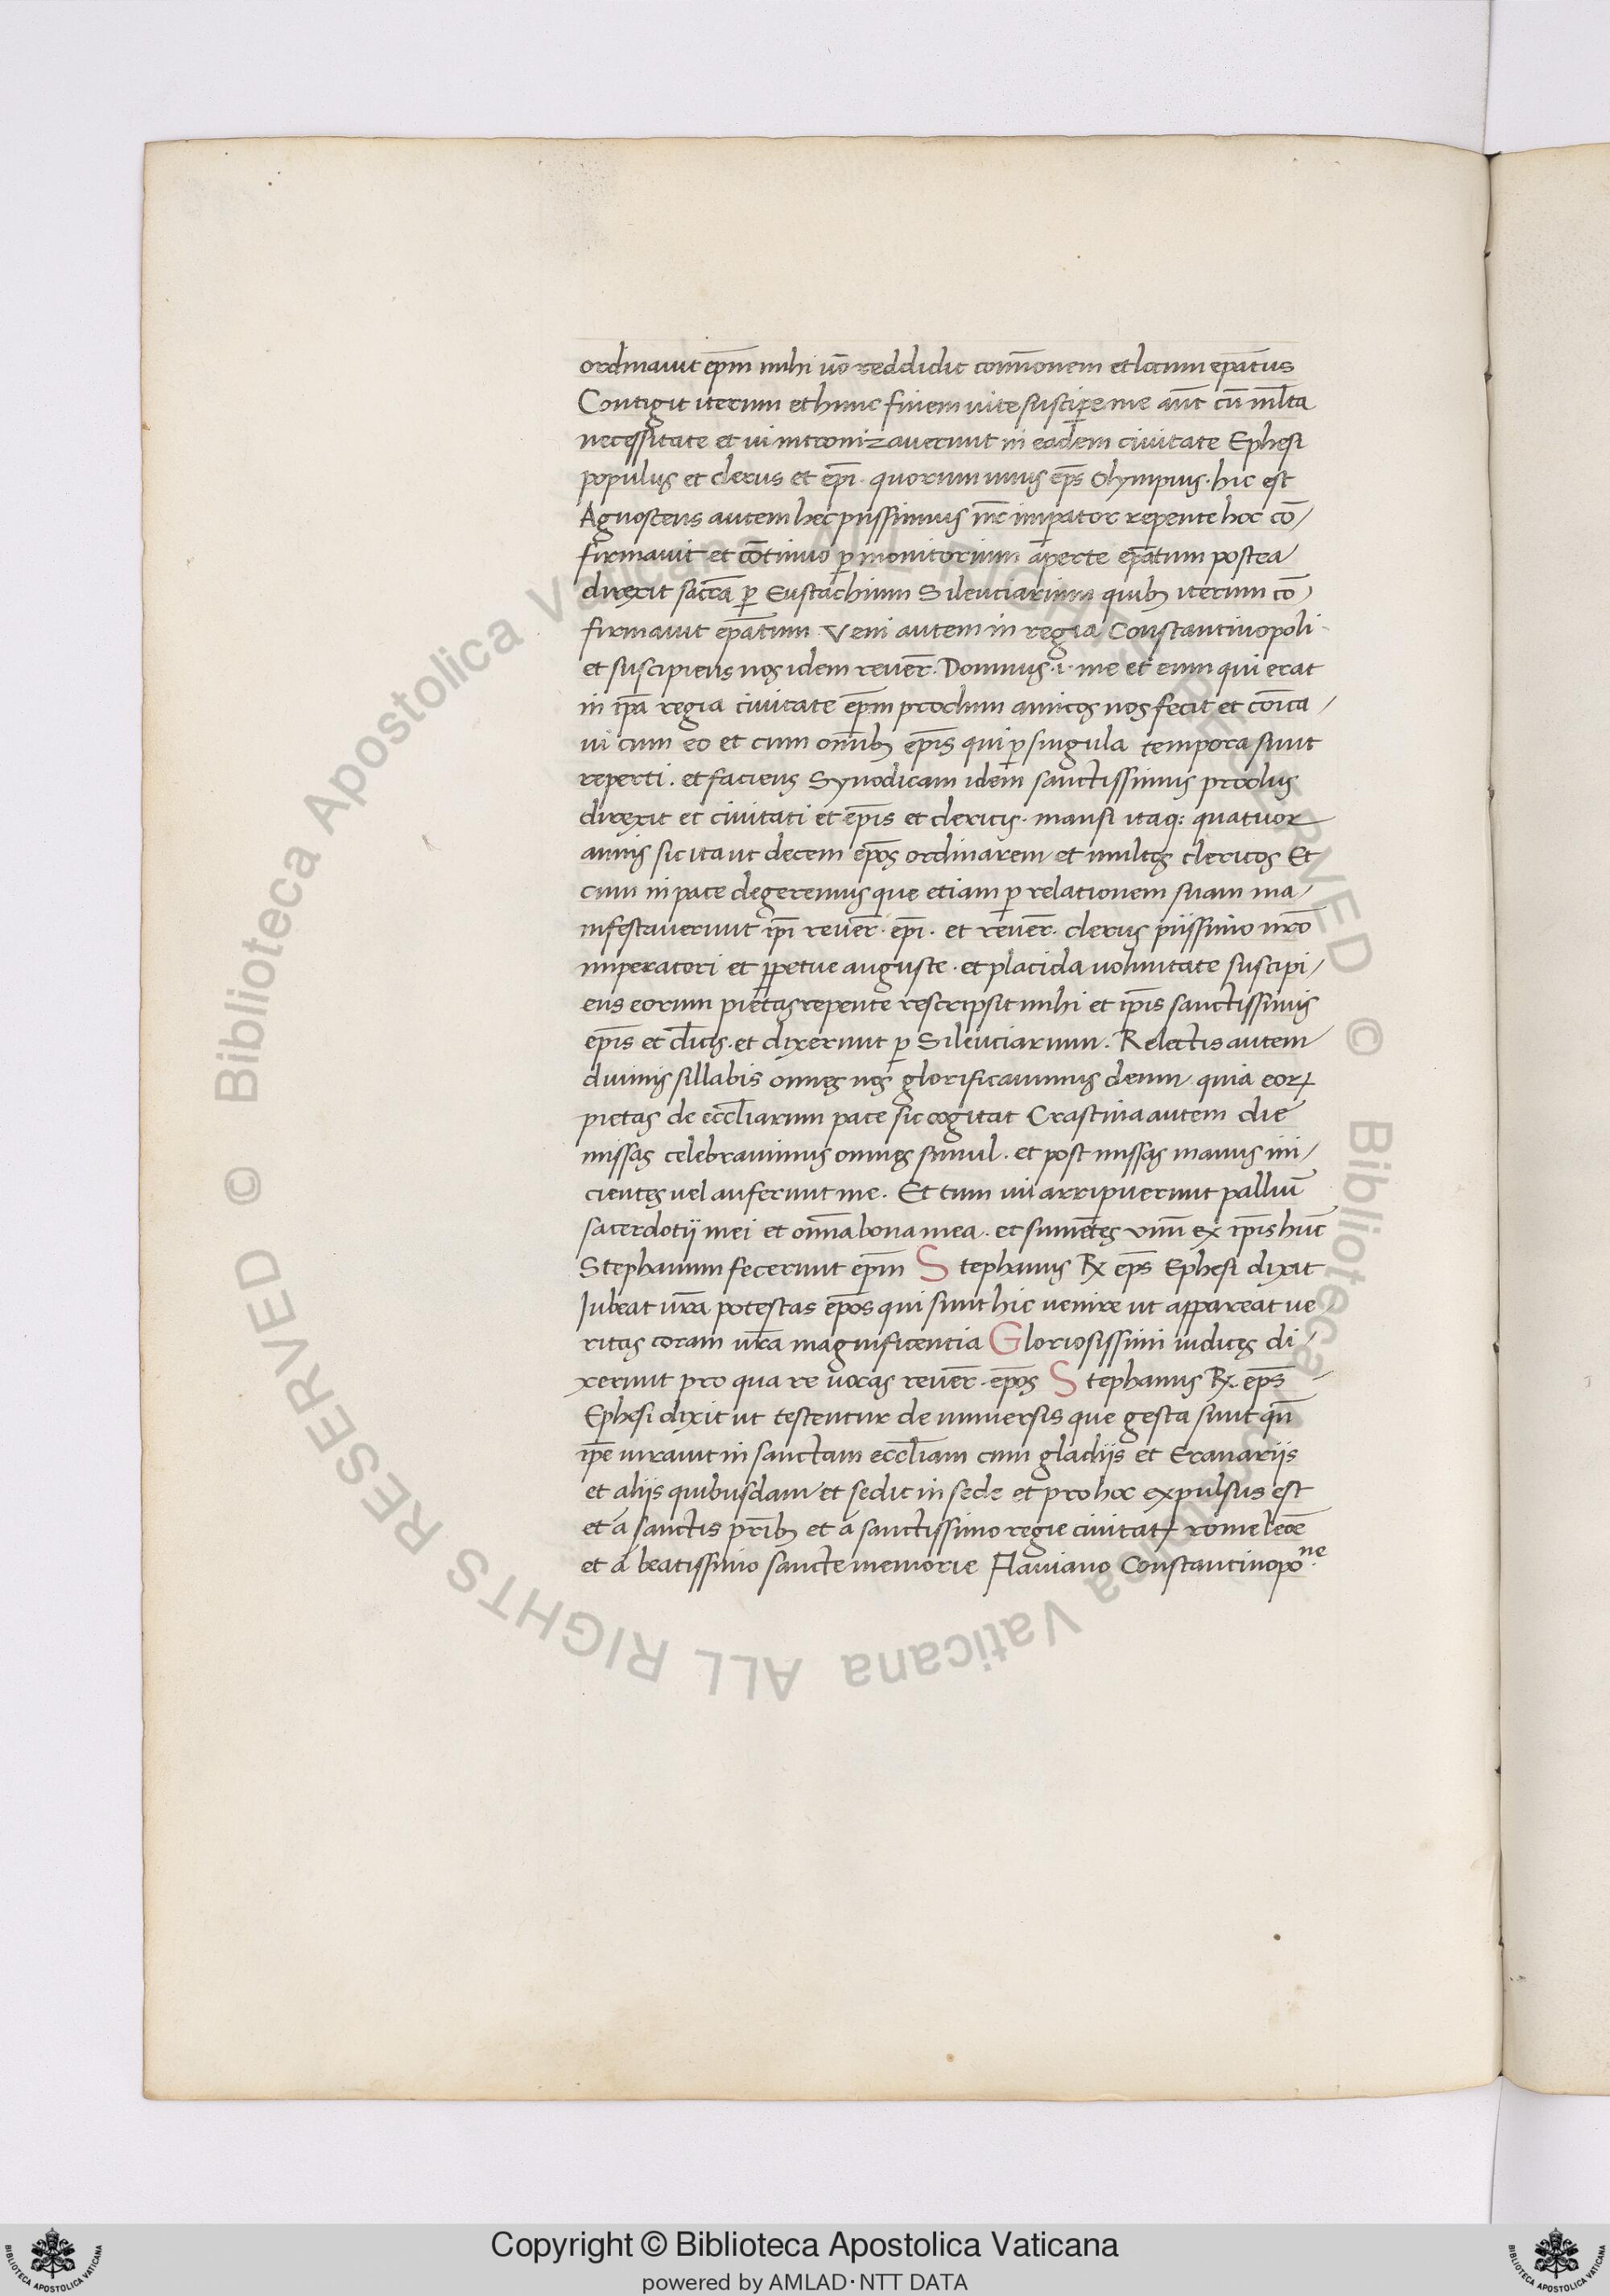 ordinavit ep̄m mihi ūo reddidit com̄onem et locum ep̄atus
Contigit iterum et hunc finem vite suscip̄e me aūt cū ml̄ta
necessitate et vi intronizaverunt in eadem civitate Ephesi
populus et clerus et ep̄i · quorum unus ep̄s Olympius · hic est
Agnoscens autem hec piissimus nr̄ imp̄ator repente hoc cō/
firmavit et cōtinuo p̱ monitorium aperte ep̄atum postea
direxit sacrā p̱ Eustachium Silentiarium quibꝫ iterum cō/
firmavit ep̄atum · Veni autem in regia Constantinopoli ·
et suscipiens nos idem revēr · Domnus · i · me et eum qui erat
in ip̄a regia civitate ep̄m proclum amicos nos fecit et cōica/
vi cum eo et cum om̄ibꝫ ep̄is qui p̱ singula tempora sunt
reperti · et faciens Synodicam idem sanctissimus proclus
direxit et civitati et ep̄is et clericis · mansi itaq: quatuor
annis sic ita ut decem ep̄os ordinarem et multos clericos Et
cum in pace degeremus que etiam p̱ relationem suam ma/
nifestaverunt ip̄i revēr · ep̄i · et revēr · clerus piissimo nr̄o
imperatori et p̱petue auguste · et placida voluntate suscipi/
ens eorum pietas repente rescripsit mihi et ip̄is sanctissimis
ep̄is et cl̄icis · et dixerunt p̱ Silentiarium · Relectis autem
divinis sillabis omnes nos glorificavimus deum quia eoꝝ
pietas de eccl̄iarum pace sic cogitat Crastina autem die
missas celebravimus omnes simul · et post missas manus ini/
cientes vel auferunt me · Et tum vi arripuerunt palliū
sacerdotii mei et om̄a bona mea · et sumētes unū ex ip̄is hūc
Stephanum fecerunt ep̄m Stephanus R͞x ep̄s Ephesi dixit
Jubeat vr̄a potestas ep̄os qui sunt hic venire ut appareat ve
ritas coram vr̄a magnificentia Gloriosissimi iudices di/
xerunt pro qua re vocas revēr · ep̄os Stephanus R͞x · ep̄s
Ephesi dixit ut testentur de universis que gesta sunt qn̄
ip̄e intravit in sanctam eccl̄iam cum gladiis et Eranariis
et aliis quibusdam et sedit in sede et pro hoc expulsus est
et á sanctis pr̄ibꝫ et á sanctissimo regie civitatꝭ rome leōe
et á beatissimo sancte memorie Flaviano Constantinopo ne·
© Biblioteca Apostolica Vaticana ALL RIGHTS RESERVED © Biblioteca Apostolica Vaticana ALL RIGHTS RESERVED
Copyright © Biblioteca Apostolica Vaticana
powered by AMLAD · NTT DATA
BIBLIOTECA APOSTOLICA VATICANA
BIBLIOTECA APOSTOLICA VATICANA